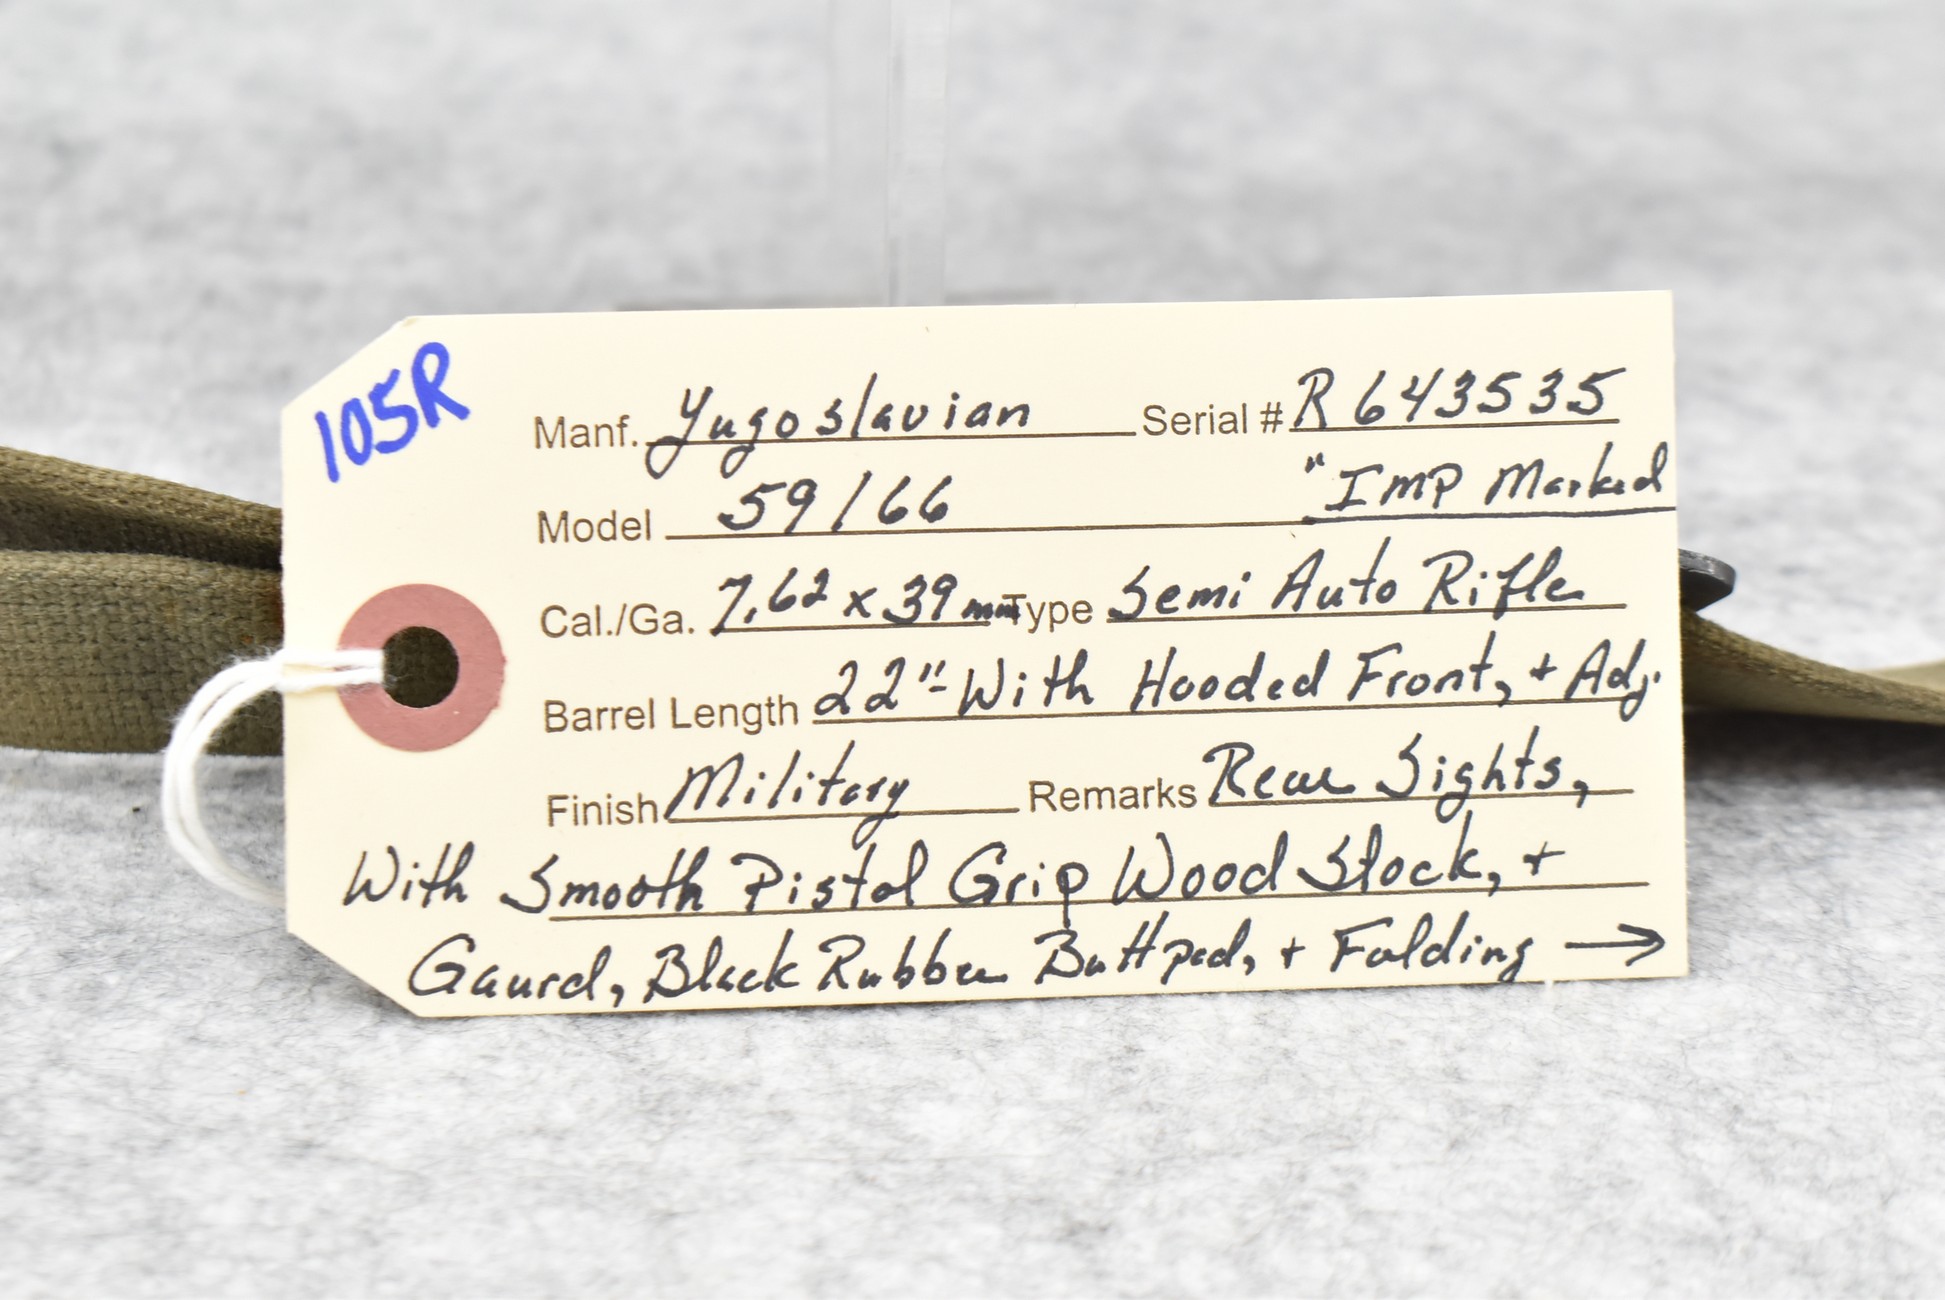 105R
Manf. Yugoslavian Serial # R643535
Model 59/66 "IMP Marked
Cal./Ga. 7.62 x 39mm Type Semi Auto Rifle
Barrel Length 22"- With Hooded Front, + Adj.
Finish Military Remarks Rear Sights,
With Smooth Pistol Grip Wood Stock, +
Gaurd, Black Rubber Buttpad, + Folding →